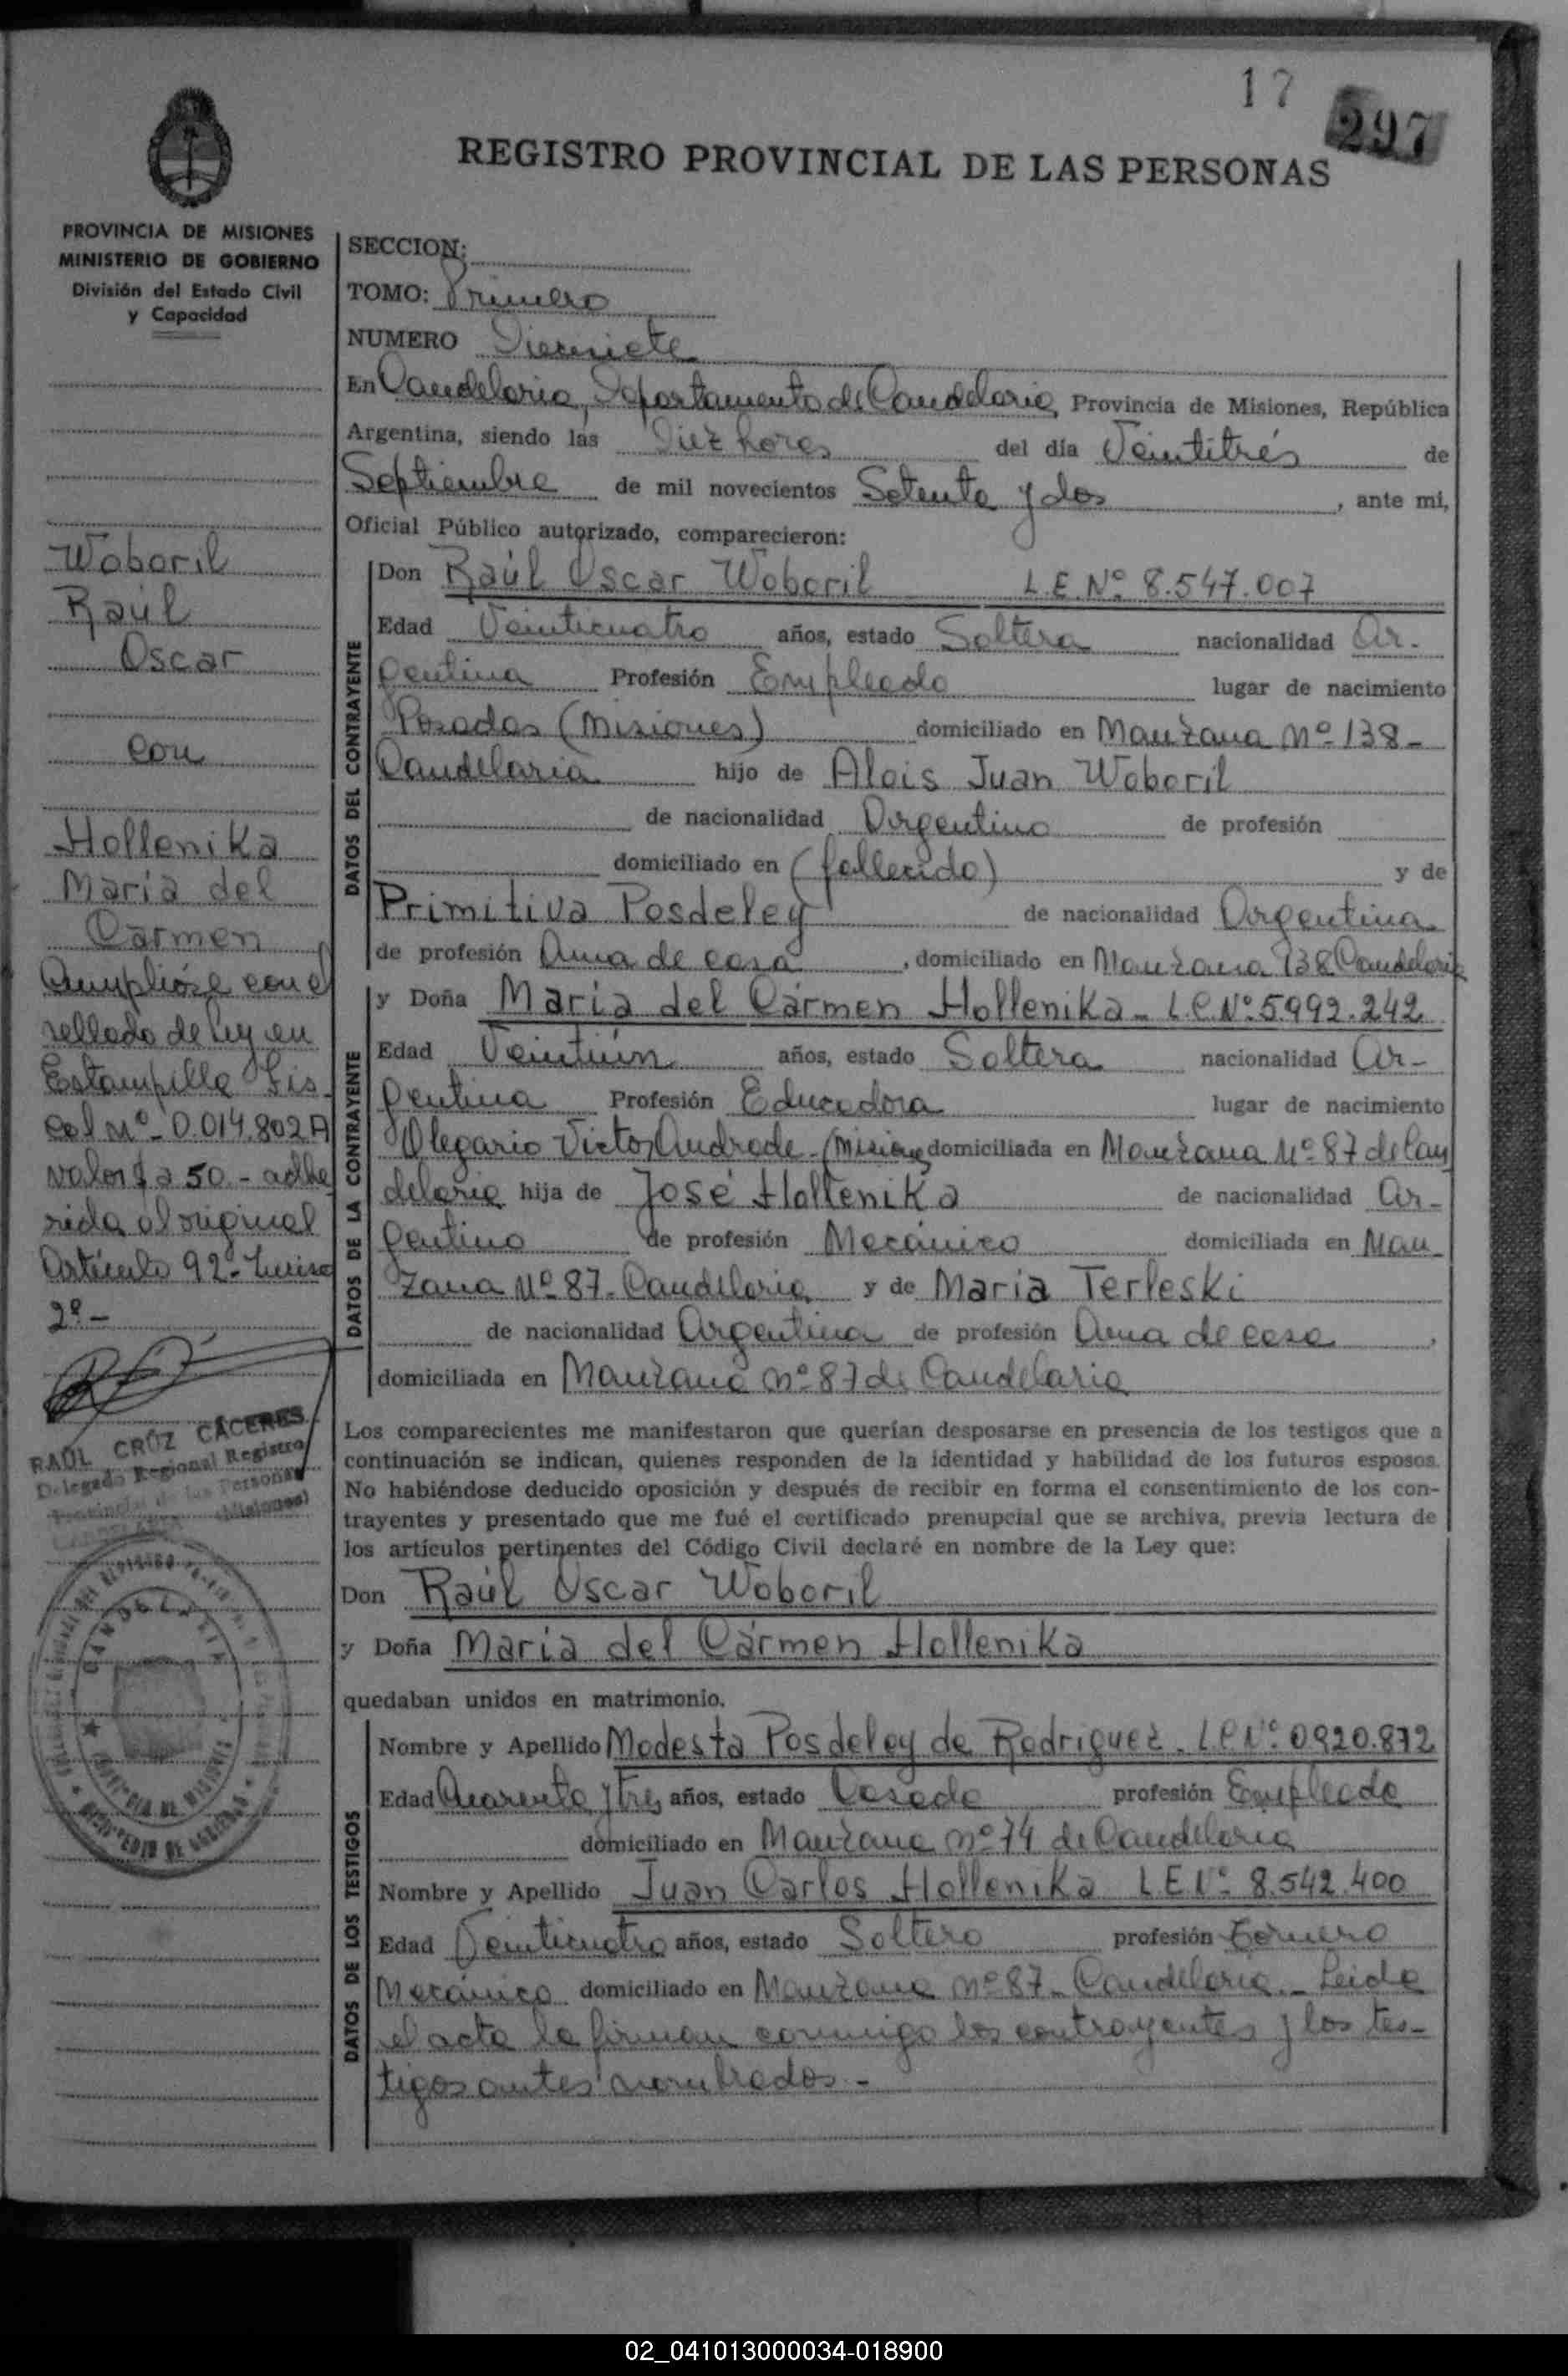 17
297
REGISTRO PROVINCIAL DE LAS PERSONAS
PROVINCIA DE MISIONES
MINISTERIO DE GOBIERNO
División del Estado Civil
y Capacidad
Woboril
Raúl
Oscar
con
Hollenika
María del
Carmen
Cumplióse con el
sellado de ley en
Estampilla Fis
cal Nº 0.014.802 A
valor $ a 50.- adhe
rida al original
Artículo 92º- Inciso
2º-
RAUL CRUZ CACERES
Delegado Regional Registro
Provincial de las Personas
(Misiones)
SECCION:
TOMO: Primero
NUMERO Diecisiete
En Candelaria, Departamento de Candelaria, Provincia de Misiones, República
Argentina, siendo las Diez horas del día Veintitrés de
Septiembre de mil novecientos Setenta y dos, ante mi,
Oficial Público autorizado, comparecieron:
DATOS DEL CONTRAYENTE
Don Raúl Oscar Woboril L.E.Nº 8.547.007
Edad Veinticuatro años, estado Soltera nacionalidad Ar-
gentina Profesión Empleado lugar de nacimiento
Posadas (Misiones) domiciliado en Manzana Nº 138-
Candelaria hijo de Alois Juan Woboril
de nacionalidad Argentino de profesión
domiciliado en (fallecido) y de
Primitiva Posdeley de nacionalidad Argentina
de profesión Ama de casa, domiciliado en Manzana 138 Candelaria
DATOS DE LA CONTRAYENTE
y Doña María del Cármen Hollenika- L.C.Nº 5.992.242
Edad Veintiún años, estado Soltera nacionalidad Ar-
gentina Profesión Educadora lugar de nacimiento
Olegario Victor Andrade-(Misiones domiciliada en Manzana Nº 87 de Can
delaria hija de José Hollenika de nacionalidad Ar-
gentino de profesión Mecánico domiciliada en Man
zana Nº 87- Candelaria y de María Terleski
de nacionalidad Argentina de profesión Ama de casa,
domiciliada en Manzana Nº 87 de Candelaria
Los comparecientes me manifestaron que querían desposarse en presencia de los testigos que a
continuación se indican, quienes responden de la identidad y habilidad de los futuros esposos.
No habiéndose deducido oposición y después de recibir en forma el consentimiento de los con-
trayentes y presentado que me fué el certificado prenupcial que se archiva, previa lectura de
los artículos pertinentes del Código Civil declaré en nombre de la Ley que:
Don Raúl Oscar Woboril
y Doña María del Cármen Hollenika
quedaban unidos en matrimonio.
DATOS DE LOS TESTIGOS
Nombre y Apellido Modesta Posdeley de Rodriguez. L.C.Nº 0.920.872
Edad Cuarenta y tres años, estado Casada profesión Empleada
domiciliado en Manzana Nº 74 de Candelaria
Nombre y Apellido Juan Carlos Hollenika L.E.Nº 8.542.400
Edad Veinticuatro años, estado Soltero profesión Tornero
Mecánico domiciliado en Manzana Nº 87- Candelaria.- Leida
el acta la firman conmigo los contrayentes y los tes-
tigos antes nombrados.-
02_041013000034-018900